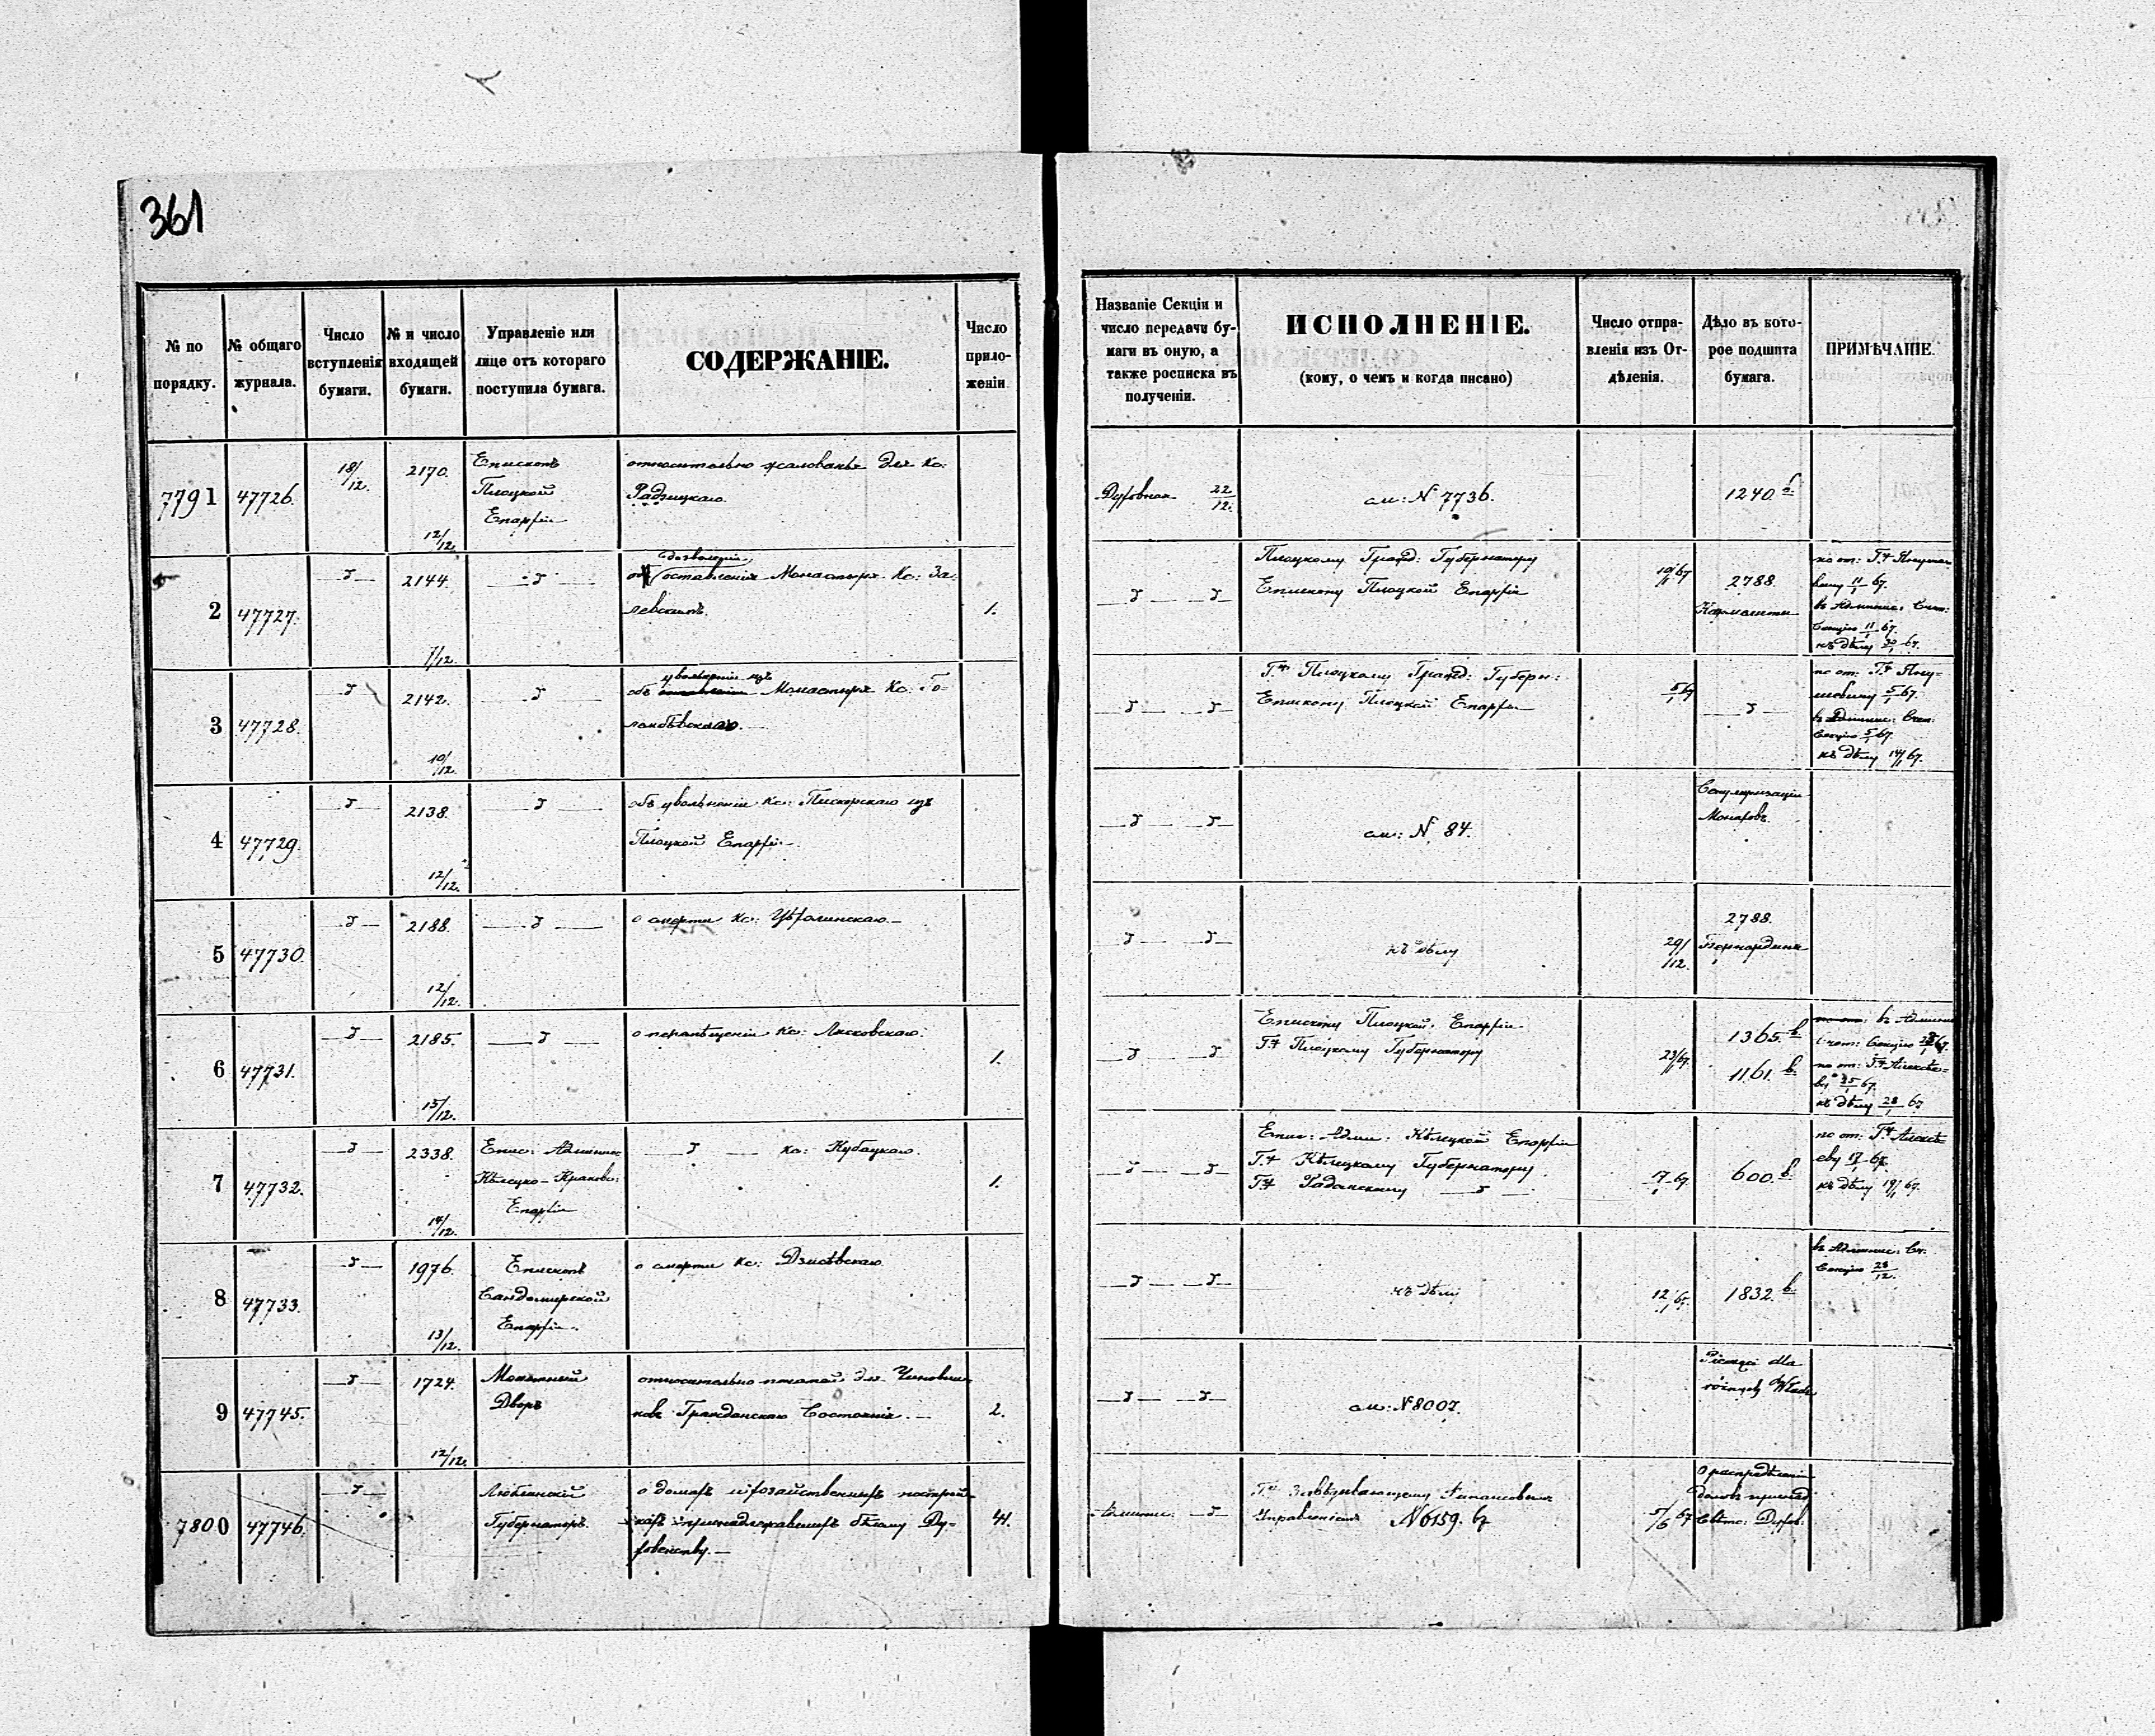 361
№ по порядку.
№ общаго журнала.
Число вступленія бумаги.
№ и число входящей бумаги.
Управленіе или лице отъ котораго поступила бумага.
СОДЕРЖАНІЕ.
Число приложеній
Названіе Секціи и число передачи бумаги въ оную, а также росписка въ полученіи.
ИСПОЛНЕНІЕ.
(кому, о чемъ и когда писано)
Число отправленія изъ Отдѣленія.
Дѣло въ которое подшита бумага.
ПРИМѢЧАНІЕ.
7791 47726. 18/12. 2170. 12/12.
Епископъ
Плоцкой
Епархіи
относительно жалованья для Кс:
Радзицкаго
Духовная 22/12.
см: N 7736.
1240.
2 47727. 2144. 7/12.
дозволеніи
оставленія Монастыря Кс: За-
левскимъ.
1.
Плоцкому Гражд: Губернатору
Епископу Плоцкой Епархіи
10/1 67
2788.
11/1 67.
въ Админис: Счет:
Секцію 11/1 67.
къ дѣлу 30/1 67.
3 47728. 2142. 10/12.
увольненіи изъ
объ Монастыря Кс: Го-
Гну Плоцкому Гражд: Губерн:
Епископу Плоцкой Епархіи
5/1 67
5/1 67.
въ Админис: Счет:
Секцію 5/1 67.
къ дѣлу 14/1 67.
4 47729. 2138. 12/12.
объ увольненіи Кс: Пискорскаго изъ
Плоцкой Епархіи
см: N 84.
Секуляризаціи
Монаховъ.
5 47730. 2188. 12/12.
о смерти Кс:
къ дѣлу
29/12.
2788.
Бернардины
6 47731. 2185. 15/12.
о перемѣщеніи Кс: Лясковскаго.
1.
Епископу Плоцкой Епархіи
Гну Плоцкому Губернатору
23/1 67.
1365. в.
1161. в.
въ Админис
Счет: Секцію
къ дѣлу 28/1 67
7 47732. 2338. 14/12.
Епис: Админис
Кѣлецко-Краковс:
Епархіи
Кс: Кубацкаго.
1.
Епис: Адми: Кѣлецкой Епархіи
Гну Кѣлецкому Губернатору
Гну Радомскому
17/1 67.
600. в.
по от: Гну Алексѣ-
еву 17/1 67.
къ дѣлу 19/1 67.
8 47733. 1976. 13/12.
Епископъ
Сандомирской
Епархіи.
о смерти Кс:
къ дѣлу
12/1 67.
1832. в.
въ Админис: Сч.
Секцію 28/12.
9 47745. 1724. 12/12.
Монетный
Дворъ
относительно печатей для Чиновни-
ковъ Гражданскаго Состоянія.
2.
см: N 8007.
Pieczęci dla
różnych Władz
7800 47746.
Люблинскій
Губернаторъ.
о домахъ и хозяйственныхъ построй-
кахъ принадлежавшихъ бѣлому Ду-
ховенству.
41.
Админис:
Гну Завѣдывающему Финансовымъ
Управленіемъ N 6159. 67
5/6 67
О распредѣленіи
домовъ принад:
Свѣтс: Духов: